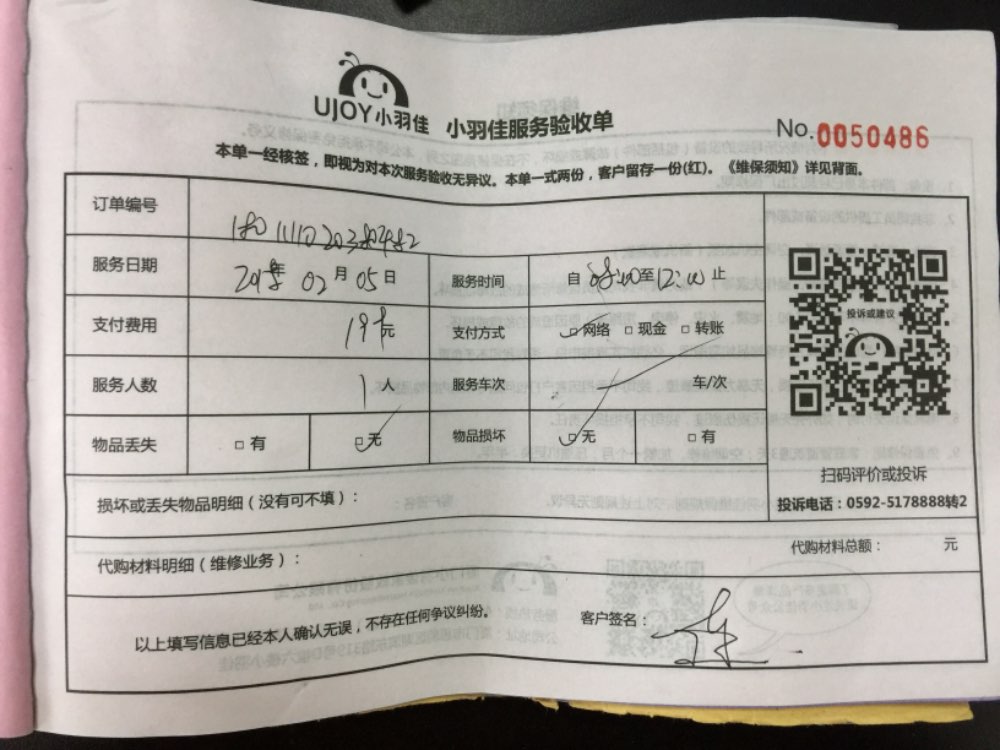 UJOY小羽佳 小羽佳服务验收单
No.0050486
本单一经核签，即视为对本次服务验收无异议。本单一式两份，客户留存一份(红)。《维保须知》详见背面。
订单编号
服务日期 2018年 02月 05日 服务时间 自 08:00至12:00止
支付费用 元 支付方式 网络 现金 转账
投诉或建议
服务人数 1人 服务车次 车/次
物品丢失 有 无 物品损坏 无 有
扫码评价或投诉
损坏或丢失物品明细（没有可不填）：
投诉电话：0592-5178888转2
代购材料明细（维修业务）： 代购材料总额： 元
以上填写信息已经本人确认无误，不存在任何争议纠纷。 客户签名：